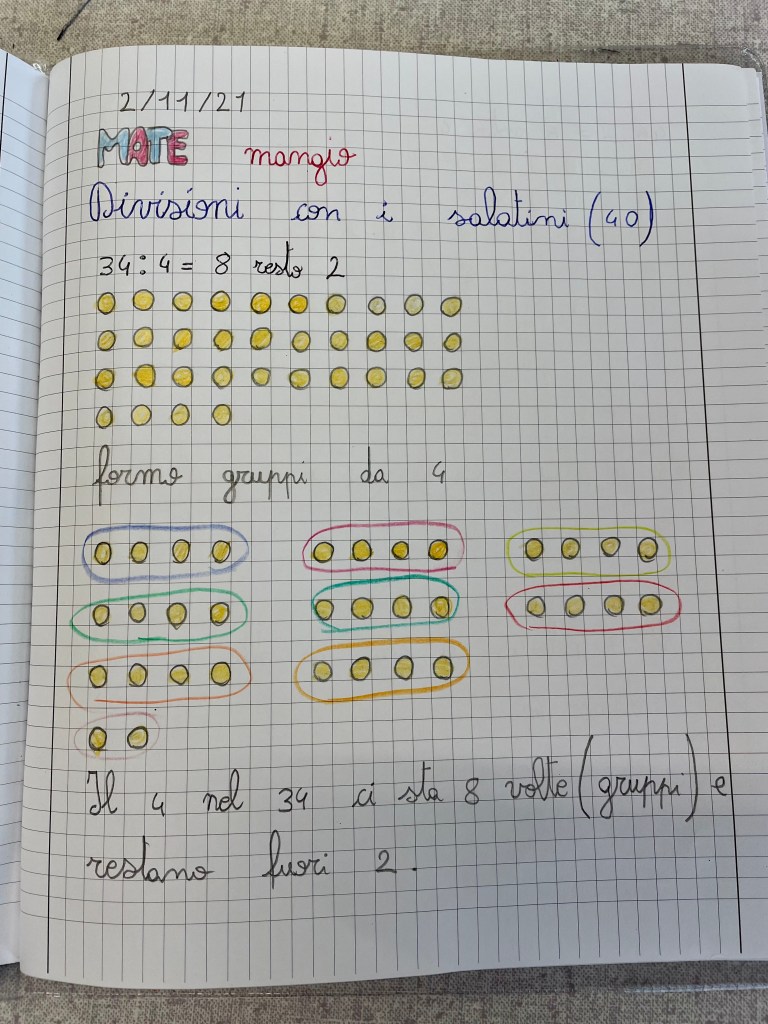 2/11/21
MATE mangio
Divisioni con i salatini (40)
34:4 = 8 resto 2
formo gruppi da 4
Il 4 nel 34 ci sta 8 volte (gruppi) e
restano fuori 2.